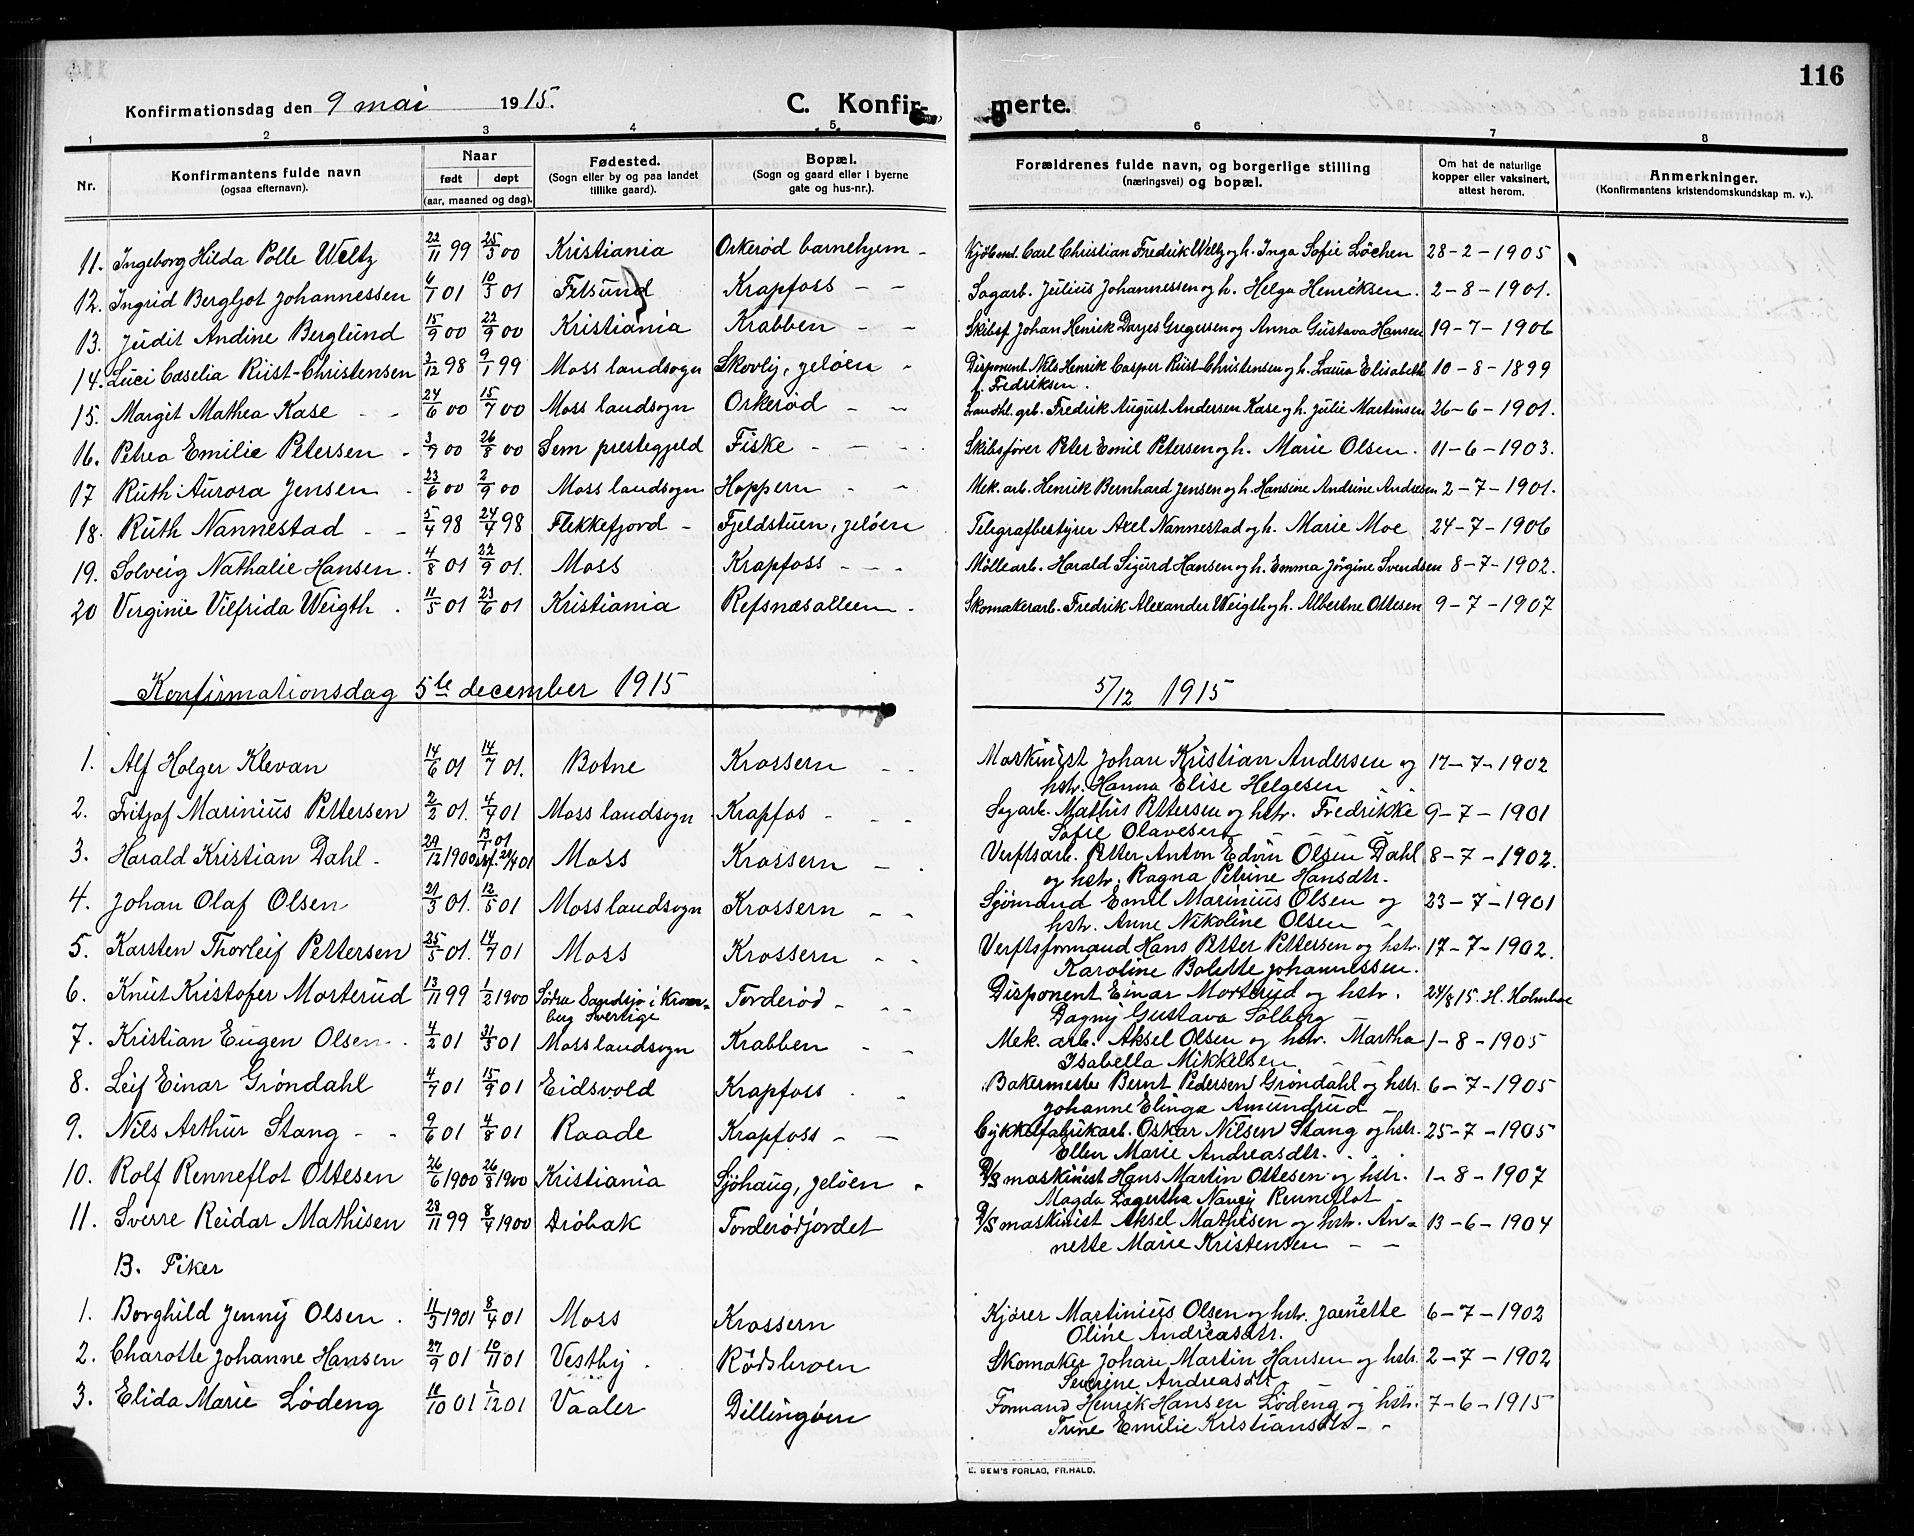 116
Konfirmationsdag den 9 mai 1915. C. Konfirmerte.
1 2 3 4 5 6 7 8
Nr. Konfirmantens fulde navn (ogsaa efternavn). Naar født døpt (aar, maaned og dag). Fødested. (Sogn eller by og paa landet tillike gaard). Bopæl. (Sogn og gaard eller i byerne gate og hus-nr.). Forældrenes fulde navn, og borgerlige stilling (næringsvei) og bopæl. Om hat de naturlige kopper eller vaksinert, attest herom. Anmerkninger. (Konfirmantens kristendomskundskap m. v.).
11. Ingeborg Hilda Polle Weltz 22/11 99 25/3 00 Kristiania Orkerød barnehjem - Kjøbmd. Carl Christian Fredrik Weltz og h. Inga Sofie Løchen 28-2-1905
12. Ingrid Bergljot Johannessen 6/1 01 10/3 01 Fetsund Krapfoss - - Sagarb. Julius Johannessen og h. Helga Henriksen. 2-8-1901.
13. Judit Andine Berglund 15/9 00 22/9 00 Kristiania Krabben - - Skibsf. Johan Henrik Darjes Gregersen og Anna Gustava Hansen 19-7-1906
14. Luci Cæselia Riist-Christensen 3/12 98 9/1 99 Moss landsogn Skovly, Jeløen - Disponent Nils Henrik Casper Riist-Christensen og h. Laura Elisabeth
f. Fredriksen. 10-8-1899
15. Margit Mathea Kase - - 24/6 00 15/7 00 Moss landsogn Orkerød - - Landhl. grb. Fredrik August Andersen Kase og h. Julie Martinsen 26-6-1901.
16. Petrea Emilie Petersen - 3/7 00 26/8 00 Sem prestegjeld Fiske - - - Skibsfører Peter Emil Petersen og h. Marie Olsen. 11-6-1903.
17 Ruth Aurora Jensen - 23/6 00 2/9 00 Moss landsogn Hoppern - - Mek. arb. Henrik Bernhard Jensen og h. Hansine Andrine Andresen 2-7-1901.
18. Ruth Nannestad - - 5/4 98 24/4 98 Flekkefjord - Fjeldstuen, Jeløen Telegrafbestyrer Axel Nannestad og h. Marie Moe 24-7-1906
19. Solveig Nathalie Hansen. 4/8 01 22/9 01. Moss Krapfoss - - - Møllearb. Harald Sigurd Hansen og h. Emma Jørgine Svendsen 8-7-1902.
20 Verginie Vilfrida Weigth. 11/5 01 23/6 01 Kristiania Refsnæsalleen. Skomakerarb. Fredrik Alexander Weigth og h. Albertne Ottesen 9-7-1907
Konfirmationsdag 5te december 1915 5/12 1915
1. Alf Holger Klevan 14/6 01 14/7 01. Botne Krossern - - Maskinist Johan Kristian Andersen og
hstr. Hanna Elise Helgesen 17-7-1902
2. Fritjof Marinius Pettersen 2/2 01. 4/4 01 Moss landsogn Krapfos - - - Sagarb. Mathis Pettersen og hstr. Fredrikke
Sofie Olavesen 9-7-1901
3. Harald Kristian Dahl - 29/12 1900 13/1 01 Moss Krossern - . Verftsarb. Petter Anton Edvin Olsen Dahl
og hstr. Ragna Petrine Hansdtr. 8-7-1902.
4. Johan Olaf Olsen 21/3 01. 12/5 01 Moss landsogn Krossern - - Sjømand Emil Marinius Olsen og
hstr. Anne Nikoline Olsen - 23-7-1901
5. Karsten Thorleif Pettersen 25/5 01. 14/7 01 Moss Krossern - - Verftsformand Hans Petter Pettersen og hstr.
Karoline Bolette Johannessen. 17-7-1902.
6. Knut Kristofer Morterud 13/11 99 1/2 1900 Södra Sandsjö i Kronoberg Sverige Torderød - - - Disponent Einar Morterud og hstr.
Dagny Gustava Solberg 24/8 15. H. Holmboe
7. Kristian Eugen Olsen - 4/2 01 31/3 01 Moss landsogn Krabben - - Mek. arb. Aksel Olsen og hstr. Martha
Isabella Mikkelsen 1-8-1905
8. Leif Einar Grøndahl 4/7 01 15/9 01 Eidsvold Krapfoss . - Bakermester Bernt Pedersen Grøndahl og hstr.
Johanne Elinga Amundrud - 6-7-1905
9. Nils Arthur Stang - - 9/6 01 4/8 01 Raade Krapfoss - - Cykkelfabrikarb. Oskar Nilsen Stang og hstr.
Ellen Marie Andreasdtr. 25-7-1905
10. Rolf Renneflot Ottesen 26/6 1900 26/8 1900 Kristiania Sjøhaug, Jeløen - D/S maskinist Hans Martin Ottesen og hstr.
Magda Lagertha Nancy Renneflot - 1-8-1907
11. Sverre Reidar Mathisen 28/11 99 8/4 1900 Drøbak Torderødjordet D/S maskinist Aksel Mathisen og hstr. An-
nette Marie Kristensen - - 13-6-1904
B. Piker
1. Borghild Jenny Olsen. 11/3 1901 8/4 01 Moss Krossern Kjører Martinius Olsen og hstr. Jaenette
Oline Andreasdtr. 6-7-1902
2. Charotte Johanne Hansen 27/9 01 10/11 01 Vestby. Rødsbroen Skomaker Johan Martin Hansen og hstr.
Severine Andreasdtr 2-7-1902
3. Elida Marie Lødeng 10/10 01 1/12 01 Vaaler Dillingøen Formand Henrik Hansen Lødeng og hstr.
Trine Emilie Kristiansdtr - - 7-6-1915
E. SEM'S FORLAG, FR.HALD.